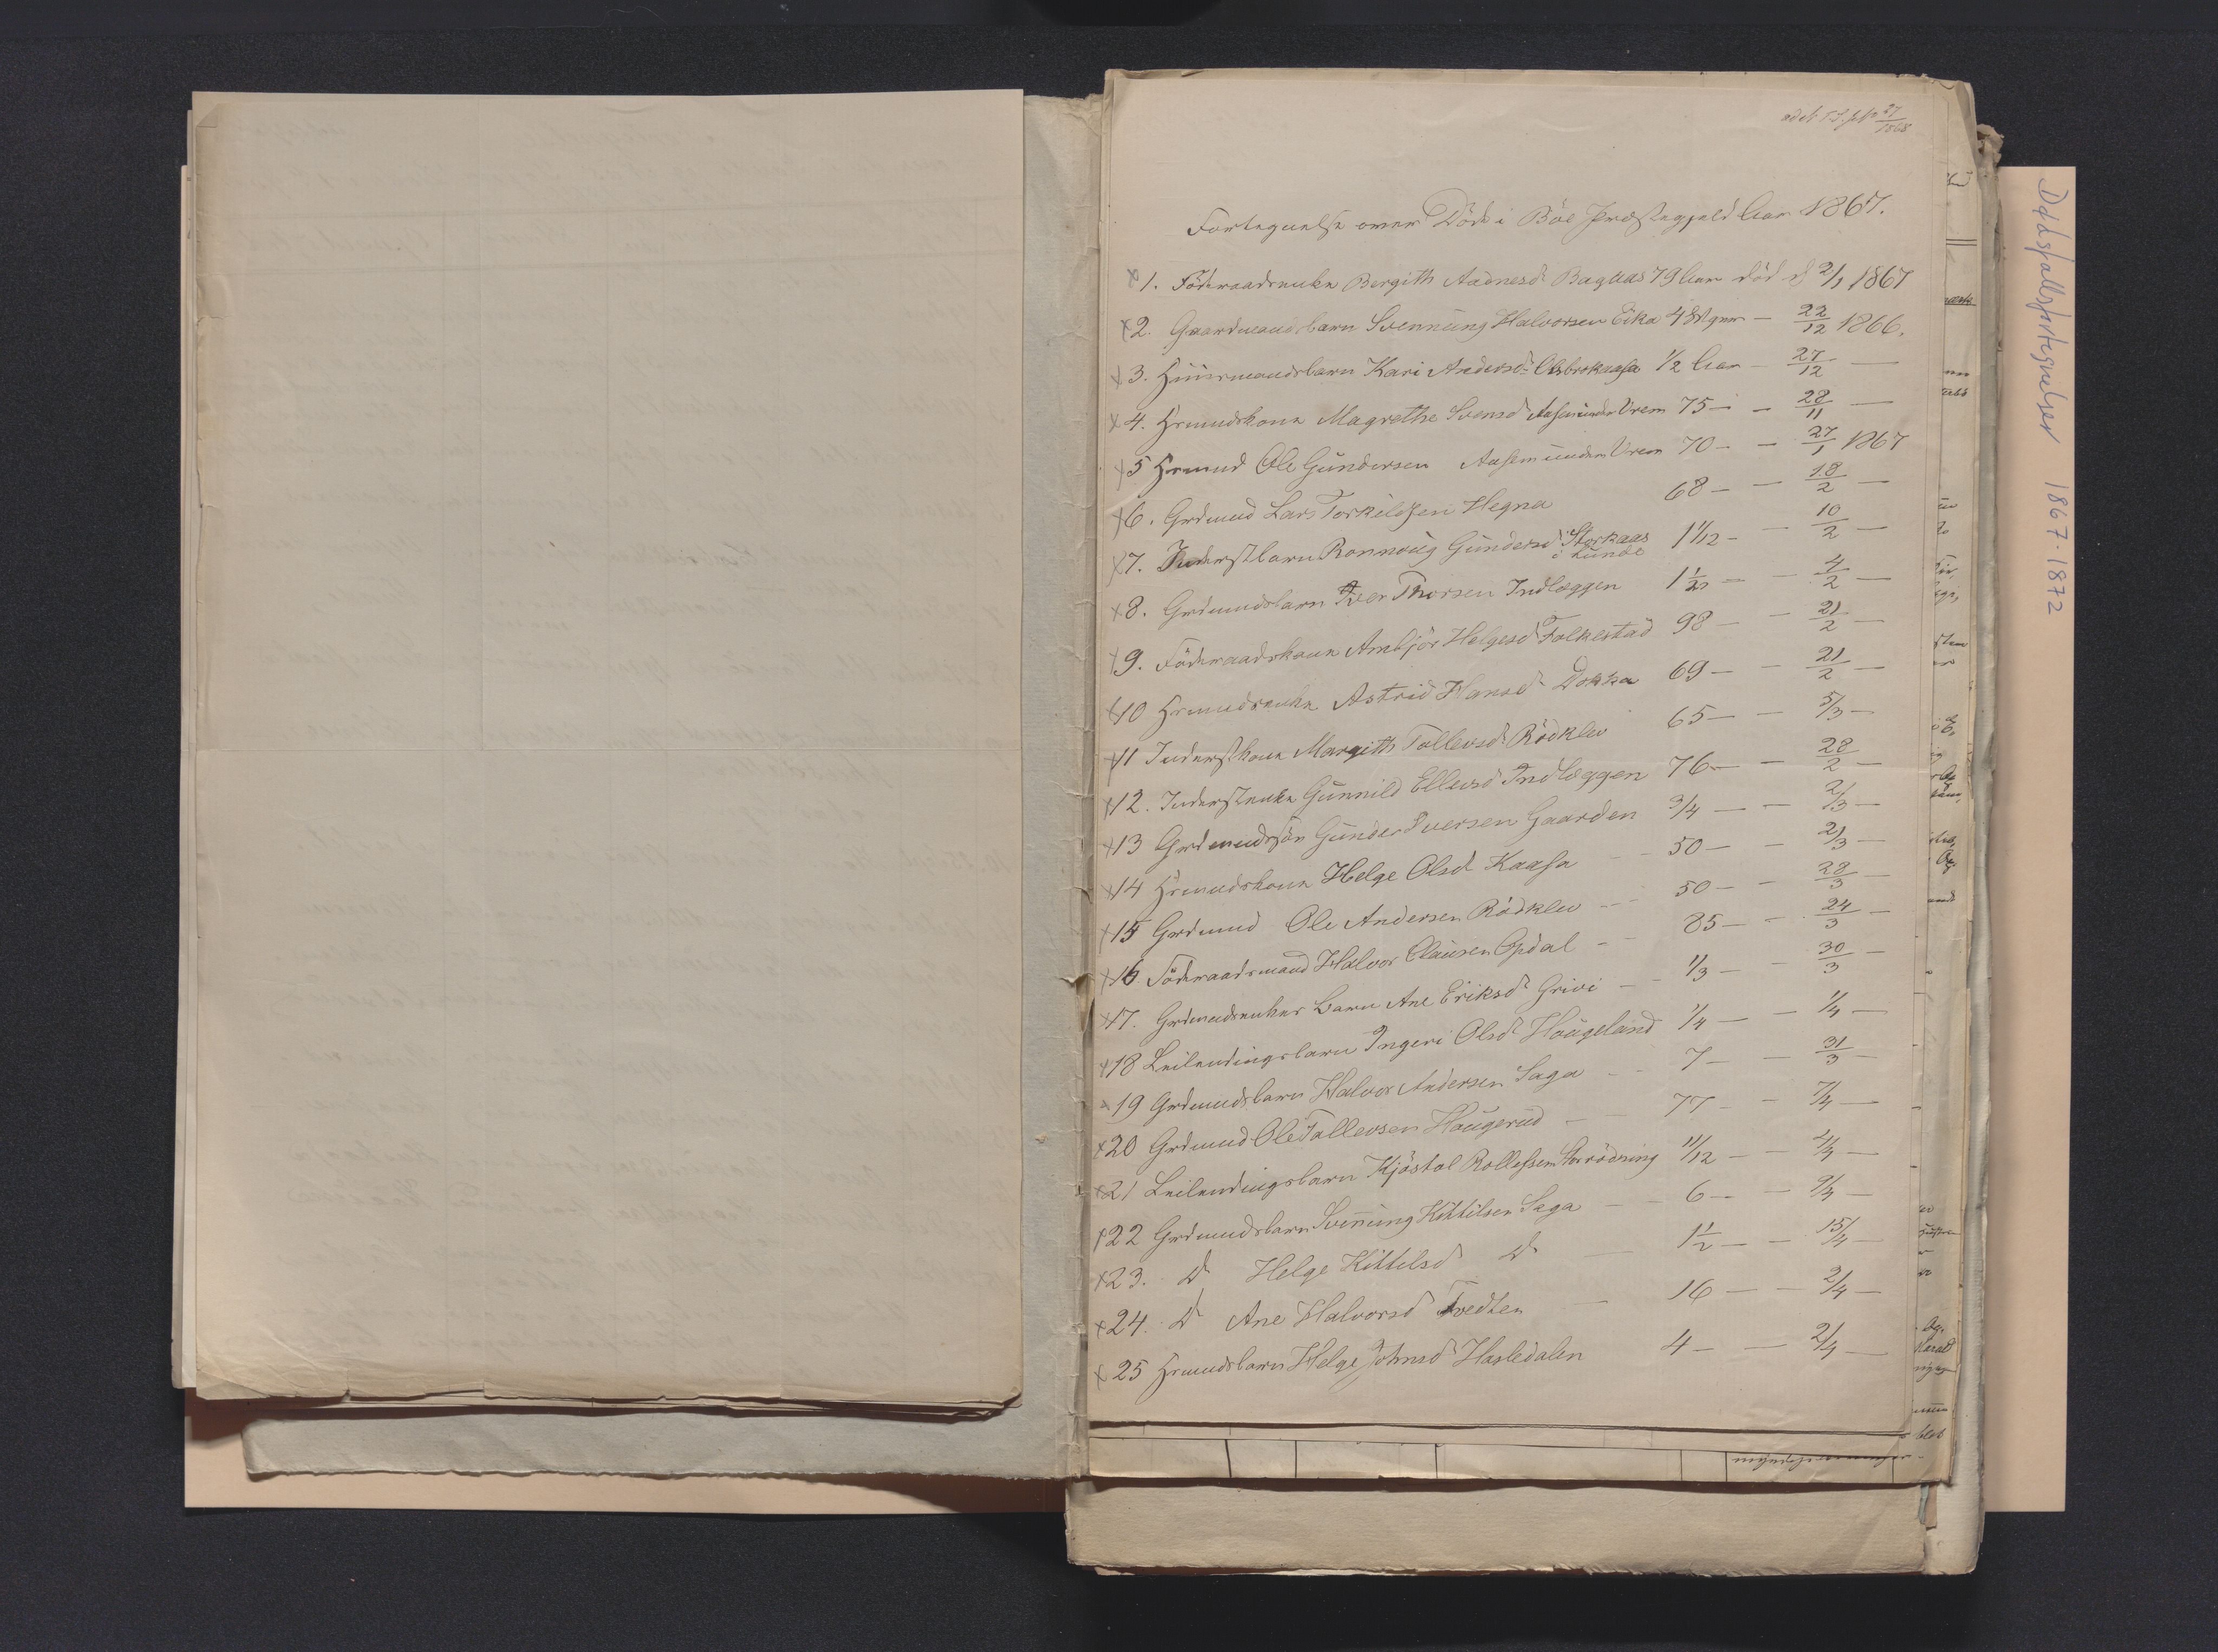 Fortegnelse over Döde i Böe Præstegjeld Aar 1867.
x1. Föderaadsenke Bergith Aadnesd. Bagaas 79 Aar död d 2/1 1867
x2. Gaardmandsbarn Svennung Halvorsen Eika 4 Dage — 22/12 1866.
x3. Huusmandsbarn Kari Andersd. Olsbrokaasa 1/2 Aar — 27/12 —
x4. Hsmndskone Magrethe Svensd. Aasen under Vrem 75 — — 28/11 —
x5 Hsmnd Ole Gundersen Aasen under Vrem 70 — — 27/1 1867
x6. Grdmnd Lars Torkildsen Hegna 68 — — 18/2 —
x7. Inderstbarn Ronnoug Gundersd. Storkaas i Lunde 1 1/12 — — 10/2 —
x8. Grdmndsbarn Iver Thorsen Indlæggen 1 1/2 — — 4/2 —
x9. Föderaadskone Anbjör Helgesd. Folkestad 98 — — 21/2 —
x10 Hsmndsenke Astrid Hansd. Dokka 69 — — 21/2 —
x11 Inderstkone Margith Tollevsd. Rödklev 65 — — 5/3 —
x12. Inderstenke Gunnild Ellevsd. Indlæggen 76 — — 28/2 —
x13 Grdmndssön Gunder Iversen Gaarden 3/4 — — 2/3 —
x14 Hsmndskone Helge Olsd. Kaasa — 50 — — 2/3 —
x15 Grdmnd Ole Andersen Rödklev — 50 — — 28/3 —
x16 Föderaadsmand Halvor Clausen Opdal — 85 — — 24/3 —
x17. Grdmndsenkes Barn Ane Eriksd. Grivi — 1/3 — — 30/3 —
x18 Leilendingsbarn Ingeri Olsd. Haugeland 1/4 — — 1/4 —
x19 Grdmndsbarn Halvor Andersen Saga — 7 — — 31/3 —
x20 Grdmnd Ole Tollevsen Haugerud — 77 — — 7/4 —
x21 Leilendingsbarn Kjöstol Rollefsen Storrödning 11/12 — — 2/4 —
x22 Grdmndsbarn Svennung Kittilsen Saga — 6 — — 9/4 —
x23. D Helge Kittilsd. D — 1 1/2 — — 15/4 —
x24. D Ane Halvorsd. Tvedten — 16 — — 2/4 —
x25 Hsmndsbarn Helge Johnsd. Hasledalen 4 — — 2/4 —
Dødsfallsfortegnelser 1867-1872